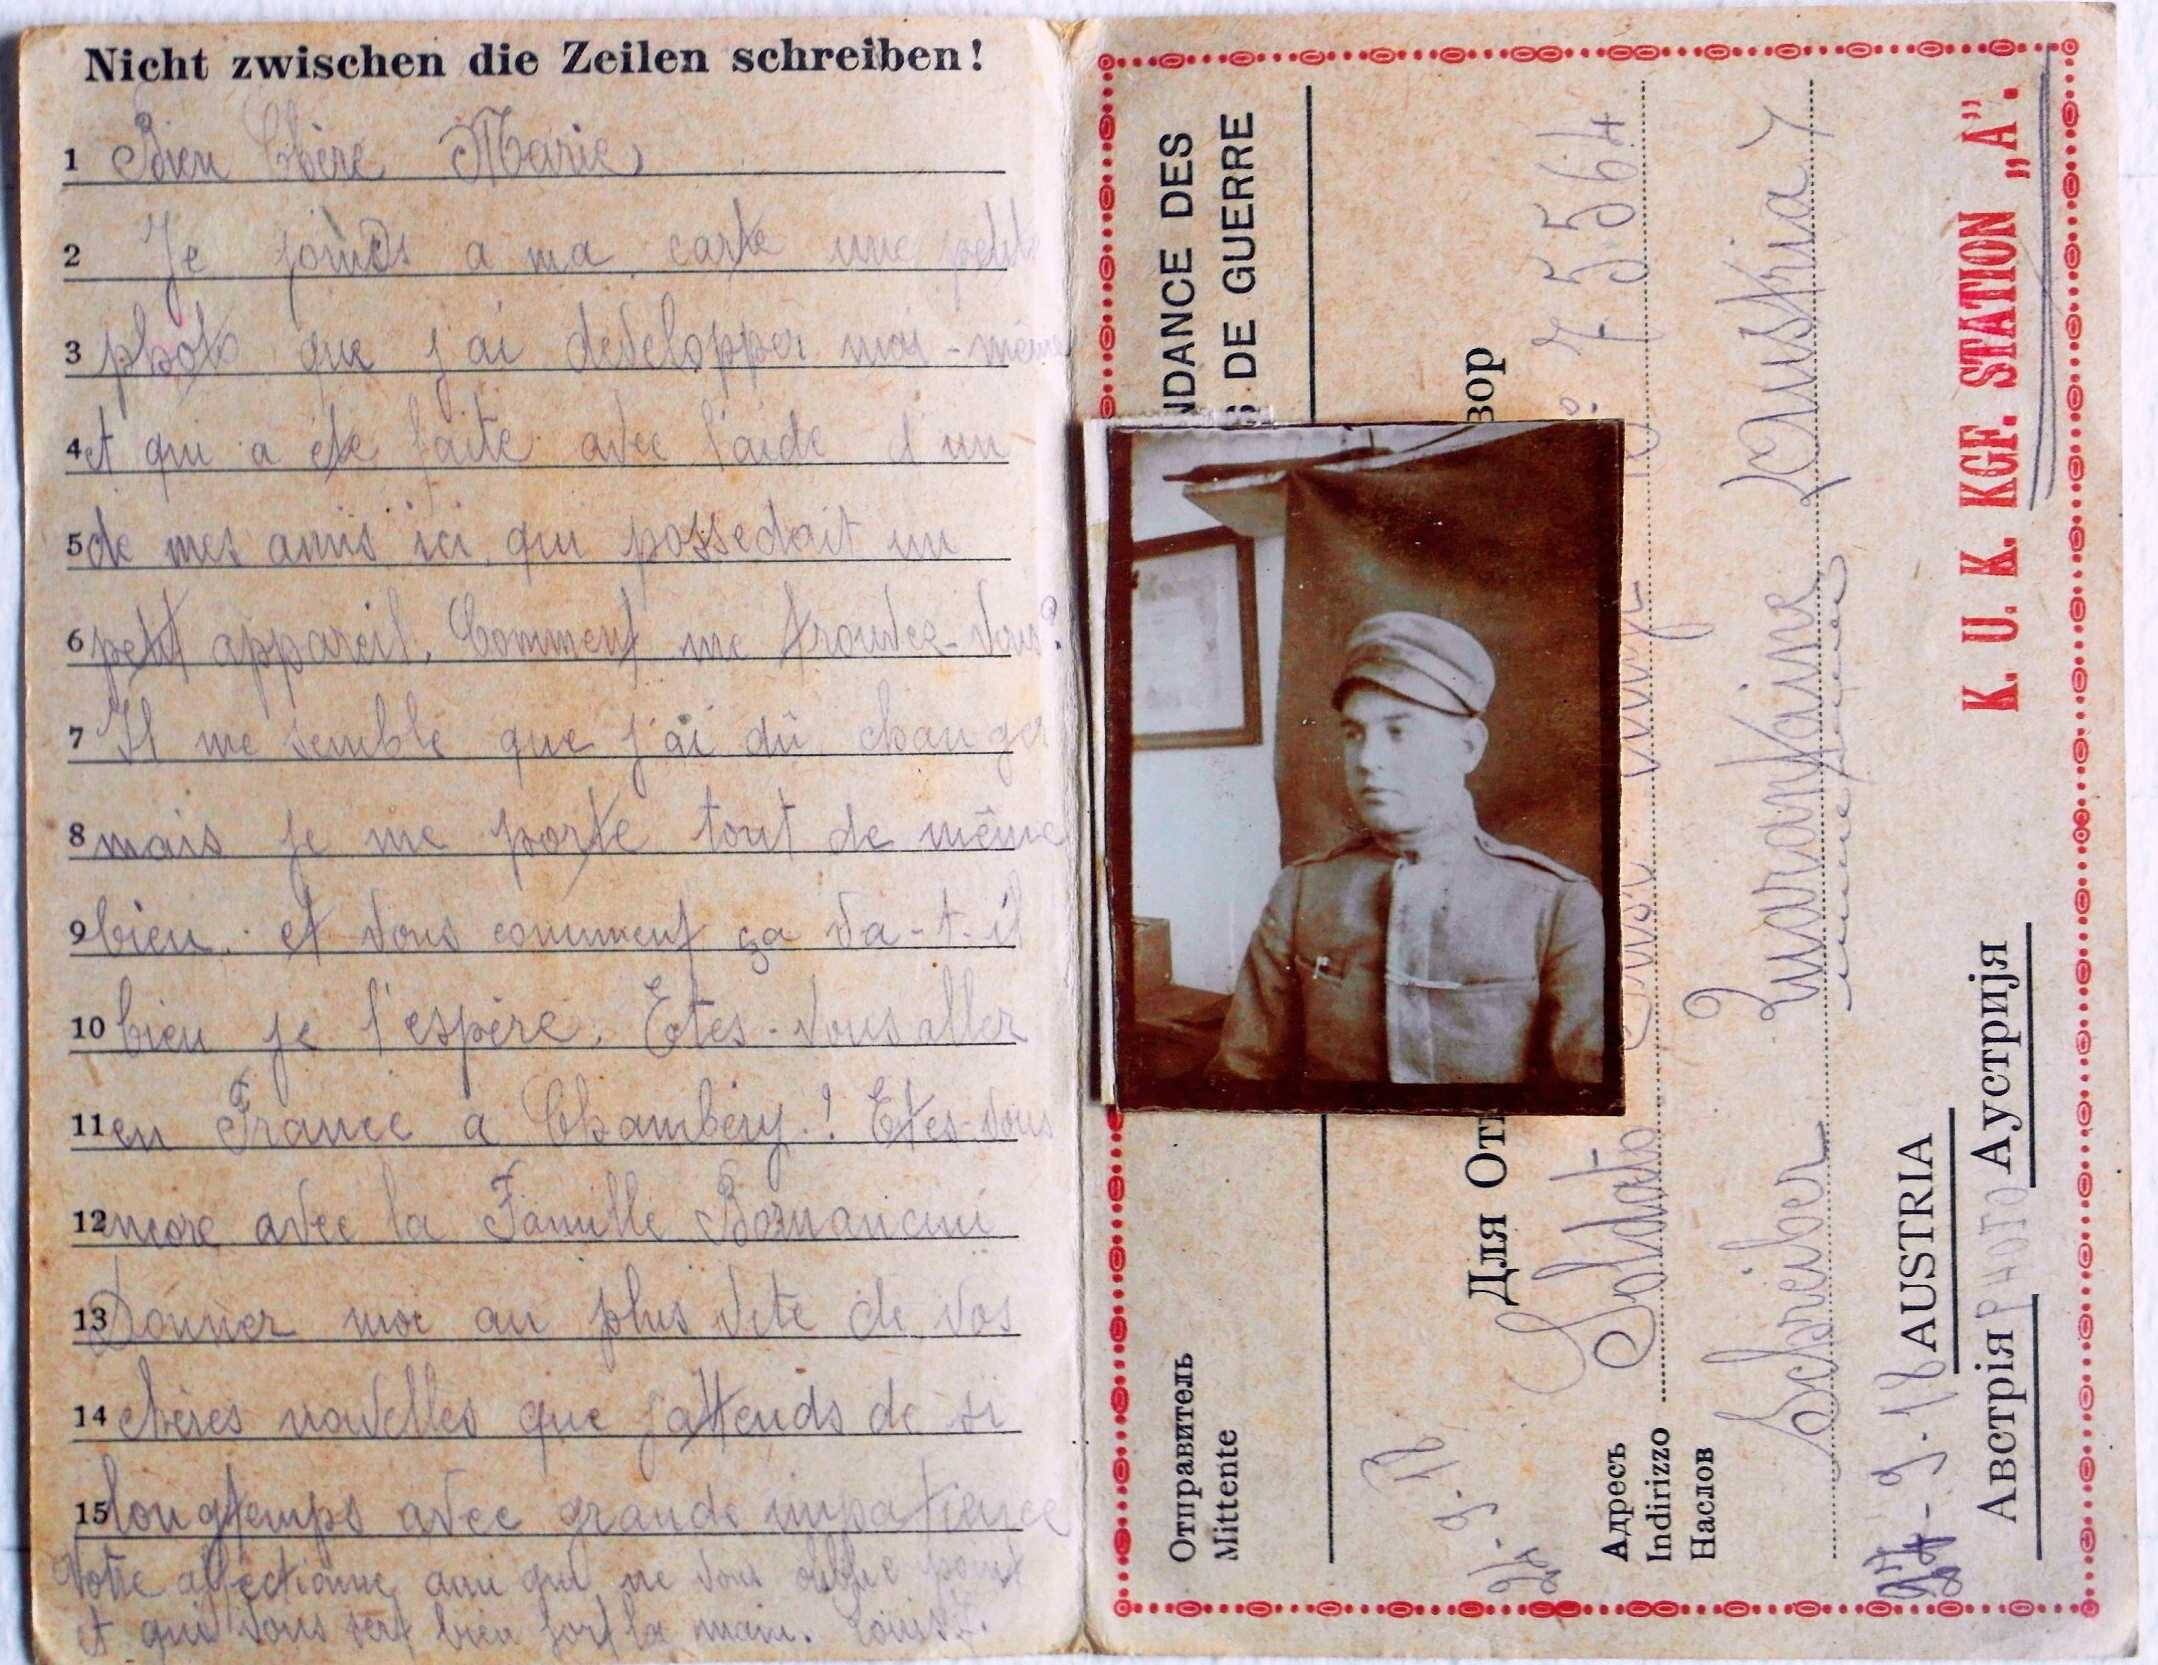 Nicht zwischen die Zeilen schreiben!
1 Bien Chère Marie,
2 Je joinds a ma carte une petite
3 photo que j'ai developper moi-même
4 et qui a éte faite avec l'aide d'un
5 de mes amis ici qui possedait un
6 petit appareil. Comment me trouvez-vous?
7 Il me semble que j'ai dû changer
8 mais je me porte tout de même
9 bien. et vous comment ça va-t-il
10 bien je l'espère. Etes-vous aller
11 en France a Chambéry! Etes-vous
12 encore avec la Famille
13 Donner moi au plus vite de vos
14 chères nouvelles que j'attends de si
15 longtemps avec grande impatience
Votre affectionne ami qui ne vous oublie point
et qui vous sert bien fort la main. Louis
NDANCE DES
S DE GUERRE
Отправитель
Mittente
Для От
зор
24.9.18
Soldato
No. 75564
Адресъ
Indirizzo
Наслов
Schreiber Quarantaine Austria 7
24-9-18 AUSTRIA
Австрія PHOTO Аустрија
K. U. K. KGF. STATION „A”.